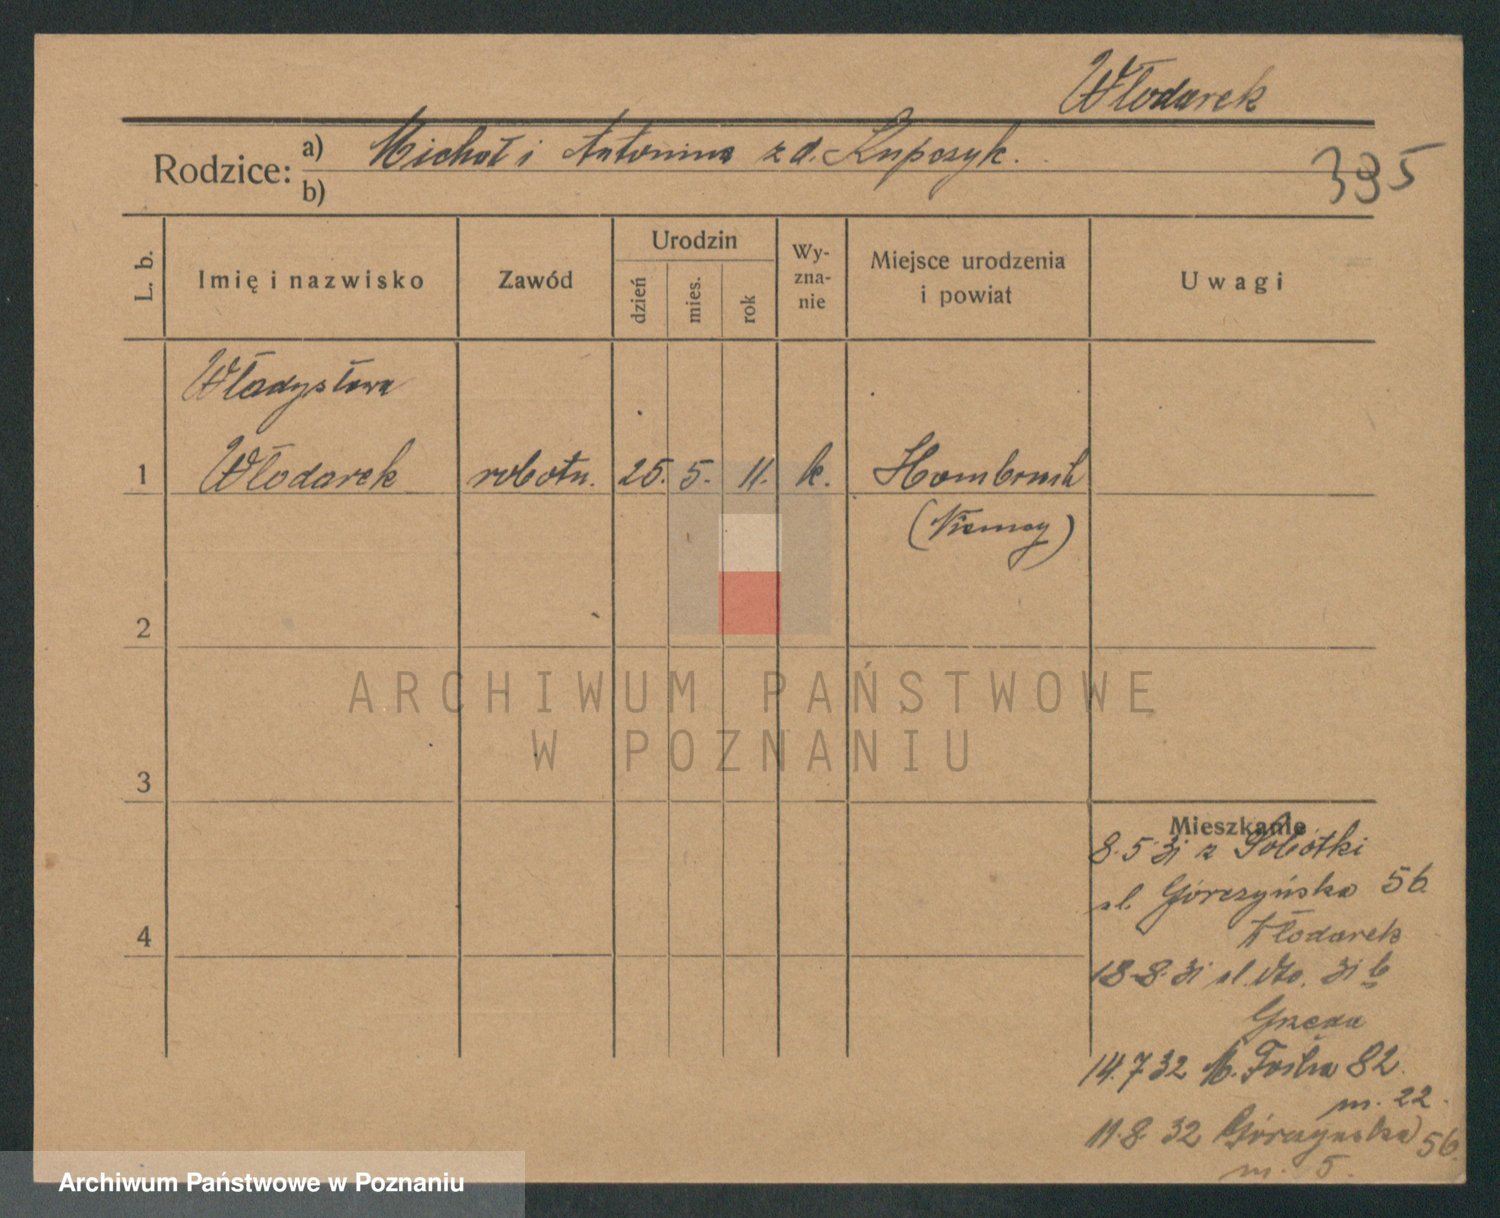 Włodarek
Rodzice: a) Michał i Antonina z d. Kupczyk.
b)
395
L. b.
Imię i nazwisko
Zawód
Urodzin
dzień
mies.
rok
Wy-
zna-
nie
Miejsce urodzenia
i powiat
Uwagi
Władysława
1 Włodarek robotn. 25. 5. 11. k. Hombruch
(Niemcy)
2
3
4
Mieszkanie
8.5.31 z Sobótki
ul. Górczyńska 56
Włodarek
18.8.31 ul. dto. 31 b
14.7.32 M. Focha 82.
m. 22.
11.8.32 Górczyńska 56.
m. 5.
ARCHIWUM PAŃSTWOWE
W POZNANIU
Archiwum Państwowe w Poznaniu